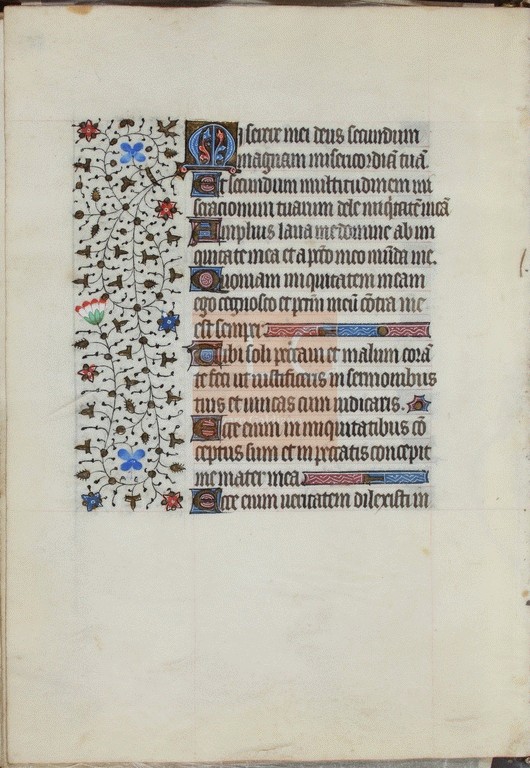 Miserere mei deus secundum
magnam misericordiã tuã.
Et secundum multitudinem mi
seracionum tuarum dele iniq̃tatẽ meã
Amplius laua me domine ab ini
quitate mea et a pcc̃o meo mũda me.
Quoniam iniquitatem meam
ego cognosco et pccm̃ meũ cõtra me
est semper.
Tibi soli peccaui et malum corã
te feci ut iustificeris in sermonibus
tuis et uincas cum iudicaris.
Ecce enim in iniquitatibus cõ
ceptus sum et in peccatis concepit
me mater mea
Ecce enim ueritatem dilexisti in